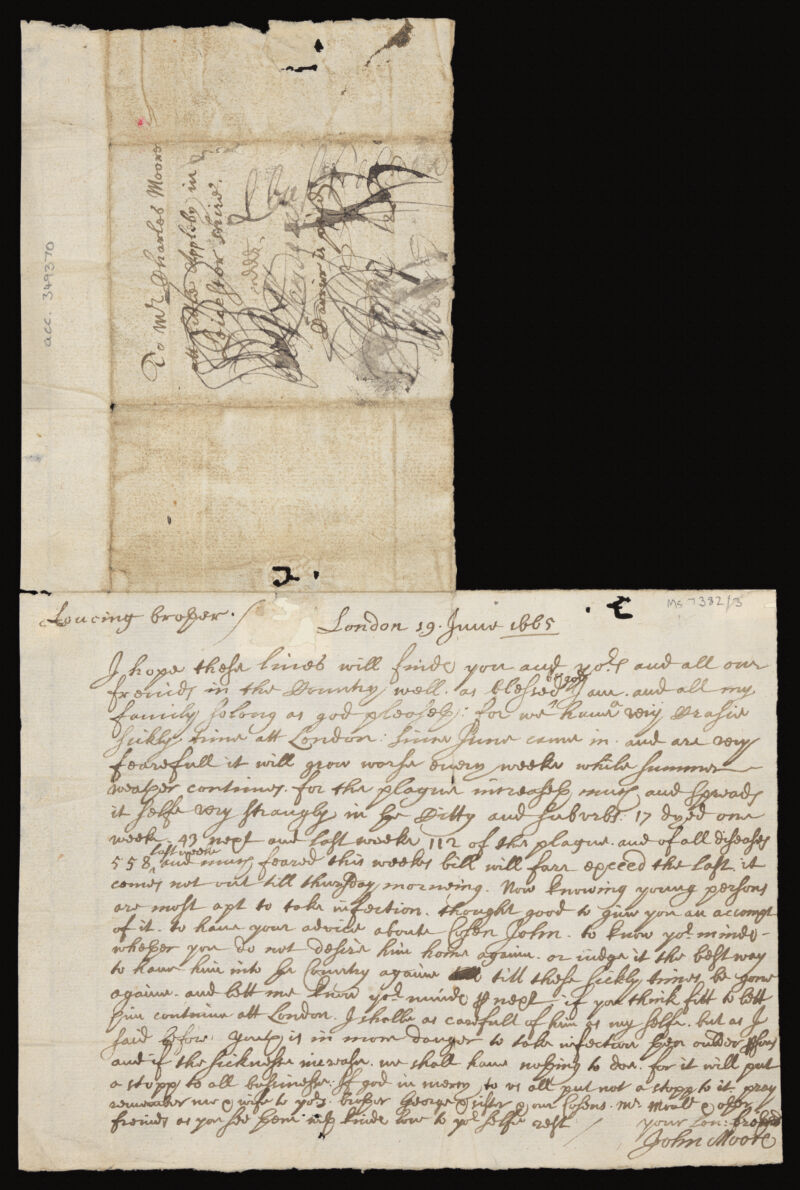 acc. 349370
To Mr Charles Moore
att Little Appleby in
Leicester shire
Carrier is paid
Ms 7382/3
Loveing brother.
London 19. June 1665
I hope these lines will finde you and yors and all our
freinds in the Country well. as blessed be god I am. and all my
family solong as god pleaseth: for we have a very Crasie
sickly time att London: since June came in. and are very
fearefull it will grow worse every weeke while summer
weather continues. for the plague increaseth much and spreads
it selfe very strangly in the Citty and suburbs: 17 dyed one
weeke. 43 next and last weeke 112 of the plague. and of all diseases
558 last weeke and much feared this weekes bill will farr exceed the last. it
comes not out till thursday morneing. Now knowing young persons
are most apt to take infection. thought good to give you an accompt
of it. to have your advice aboute Cosen John. to know yor minde
whether you do not desire him home againe. or iudge it the best way
to have him into the Country againe till these sickly times be gone
againe. and lett me know yor minde p next. if you think fitt to lett
him continue att London. I shalbe as carefull of him as my selfe. but as I
said before. youth is in more danger to take infection then oulder psons
and if the sicknesse increase. we shall have nothing to doe. for it will put
a stopp to all businesse: If god in mercy to us all put not a stopp to it. pray
remember me & wife to yors. brother George & sister & our Cosens. Mr Mould & other
freinds as you see them with kinde love to yor selfe rest
your lov: brother
John Moore